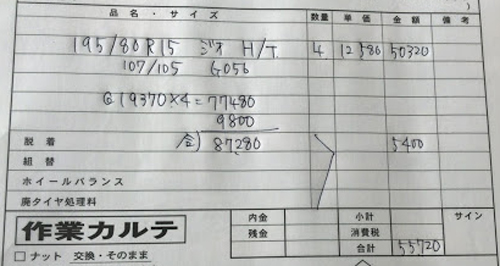 品名・サイズ 数量 単価 金額 備考
195/80R15 ジオ H/T 4 12580 50320
107/105 G056
@19370×4=77480
9800
脱着 87280 5400
組替
ホイールバランス
廃タイヤ処理料
作業カルテ 内金 小計 サイン
残金 消費税
合計 55720
□ナット 交換・そのまま